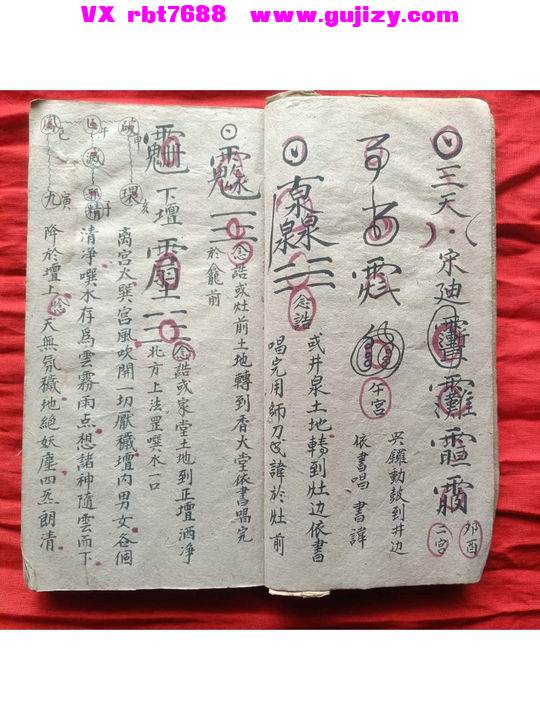 VX rbt7688 www.gujizy.com
三天
宋迪
卯酉
二宮
午宮
哭鎖動鼓到井边
依書唱 書諱
念誥
或井泉土地轉到灶边依書
唱完用師刀 諱於灶前
念誥或灶前土地轉到香火堂依書唱完
於龕前
下壇
念誥或家堂土地到正壇洒净
北方上法罡噀水一口
破 申
午
巳
滅
環 亥
精
九 寅
離宮火巽宮風吹開一切厭穢壇内男女各個
清凈噀水存為雲霧雨点想諸神隨雲而下
降於壇上 念 天無氛穢地絕妖塵四炁朗清